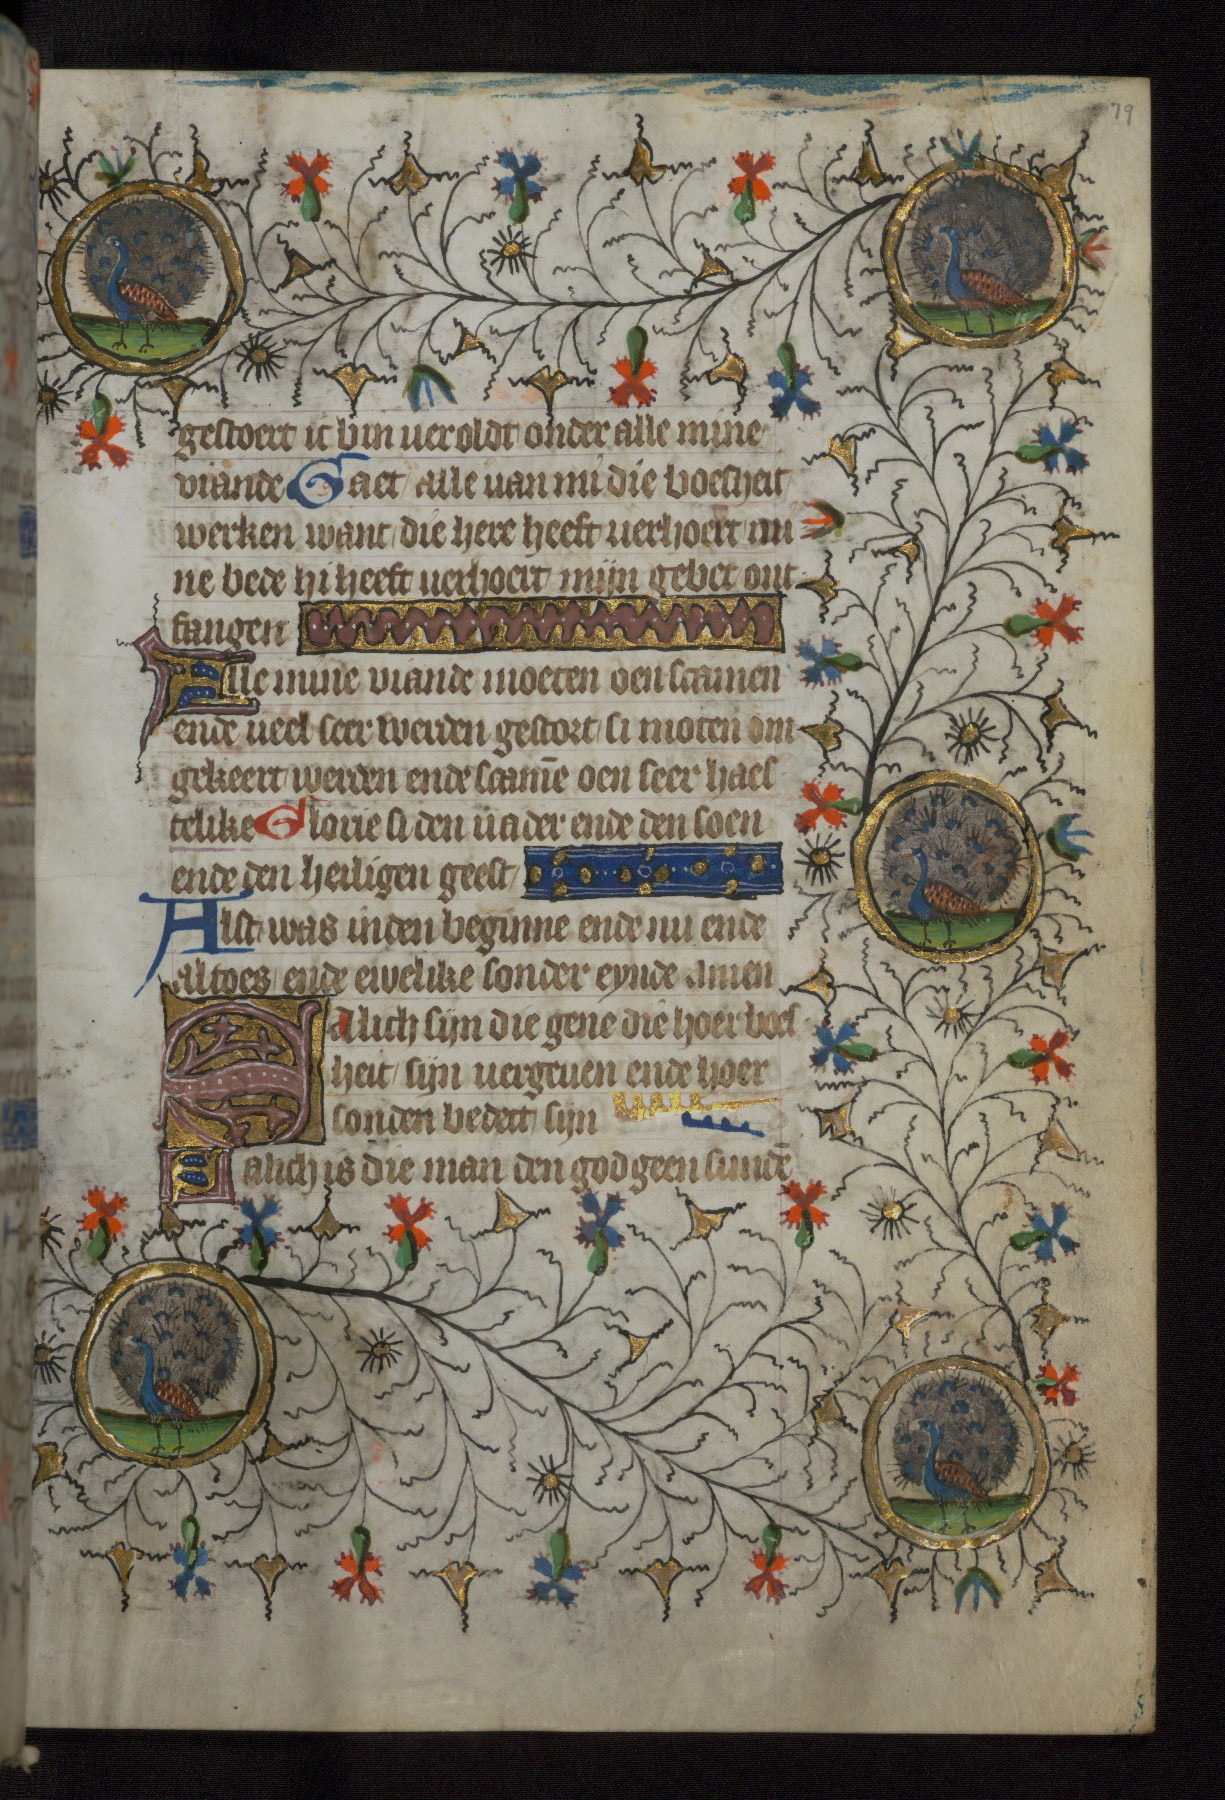 79
gestoert ic bin ueroldt onder alle mine
viande Gaet alle uan mi die boesheit
werken want die here heeft uerhoert mi
ne bede hi heeft uerhoert mijn gebet ont
fangen
Alle mine viande moeten oen scamen
ende ueel seer werden gestort si moten om
gekeert werden ende scamē oen seer haes
telike Glorie si den uader ende den soen
ende den heiligen geest
Alst was inden beginne ende nu ende
altoes ende ewelike sonder eynde amen
Salich sijn die gene die hoer boes
heit sijn uergeuen ende hoer
sonden bedect sijn
Salich is die man den god geen sundē